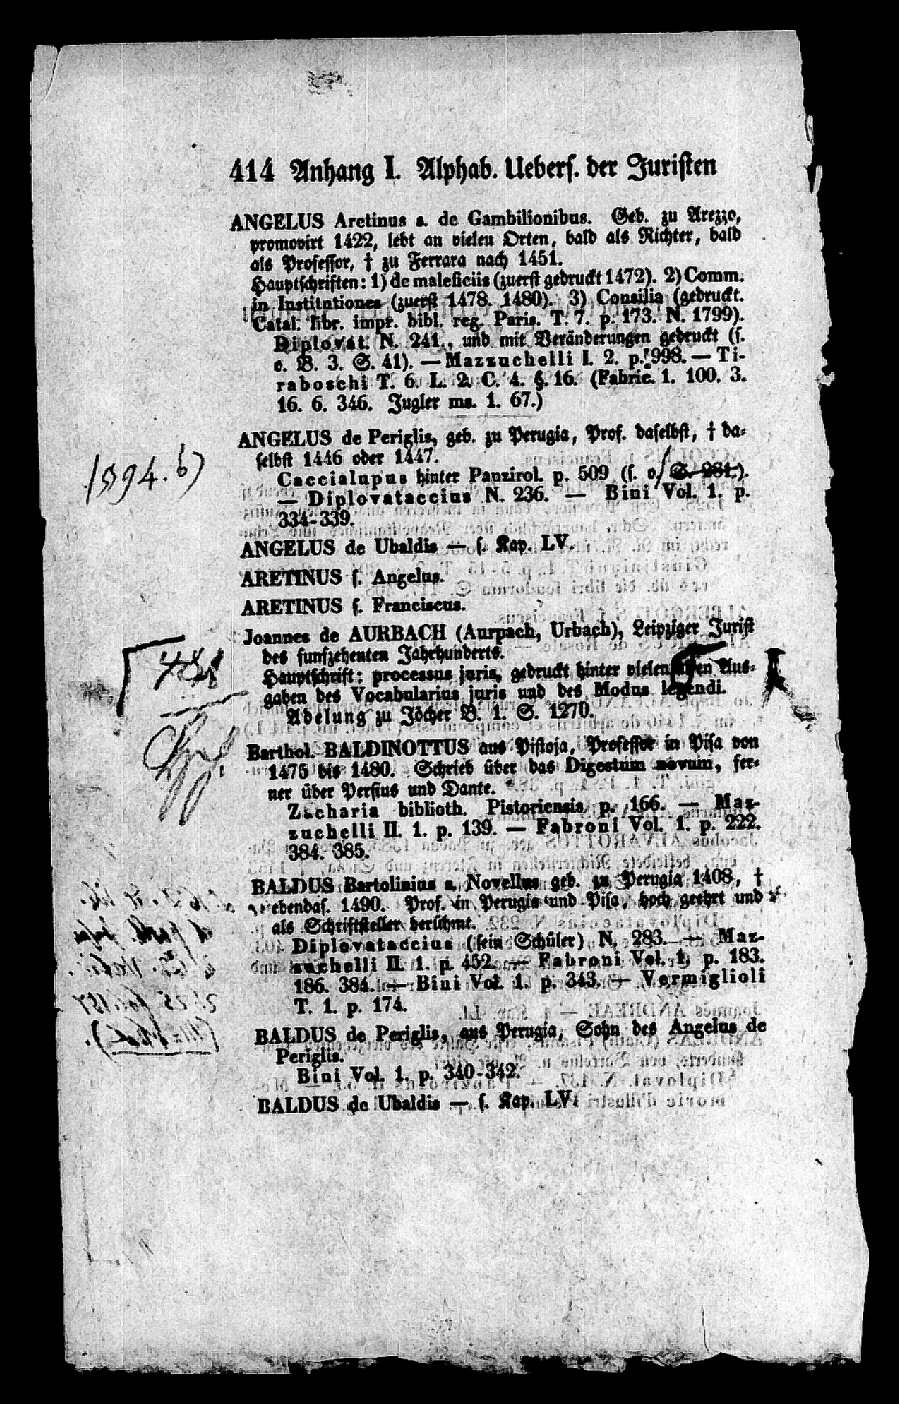 414 Anhang I. Alphab. Uebers. der Juristen
ANGELUS Aretinus s. de Gambilionibus. Geb. zu Arezzo,
promovirt 1422, lebt an vielen Orten, bald als Richter, bald
als Professor, † zu Ferrara nach 1451.
Hauptschriften: 1) de maleficiis (zuerst gedruckt 1472). 2) Comm.
in Institutiones (zuerst 1478. 1480). 3) Consilia (gedruckt.
Catal. libr. impr. bibl. reg. Paris. T. 7. p. 173. N. 1799).
Diplovat. N. 241., und mit Veränderungen gedruckt (s.
o. B. 3. S. 41). — Mazzuchelli I. 2. p. 998. — Ti-
raboschi T. 6. L. 2. C. 4. §. 16. (Fabric. 1. 100. 3.
16. 6. 346. Jugler ms. 1. 67.)
ANGELUS de Periglis, geb. zu Perugia, Prof. daselbst, † da-
selbst 1446 oder 1447.
1394. b)
Caccialupus hinter Panzirol. p. 509 (s. o. S. 281.).
— Diplovataccius N. 236. — Bini Vol. 1. p.
334-339.
ANGELUS de Ubaldis — s. Kap. LV.
ARETINUS s. Angelus.
ARETINUS s. Franciscus.
Joannes de AURBACH (Aurpach, Urbach), Leipziger Jurist
des funfzehenten Jahrhunderts.
Hauptschrift: processus juris, gedruckt hinter vielen Aus-
gaben des Vocabularius juris und des Modus legendi.
Adelung zu Jöcher B. 1. S. 1270.
Barthol. BALDINOTTUS aus Pistoja, Professor in Pisa von
1475 bis 1480. Schrieb über das Digestum novum, fer-
ner über Persius und Dante.
Zacharia biblioth. Pistoriensis p. 166. — Maz-
zuchelli II. 1. p. 139. — Fabroni Vol. 1. p. 222.
384. 385.
BALDUS Bartolinius s. Novellus geb. zu Perugia 1408, †
ebendas. 1490. Prof. in Perugia und Pisa, hoch geehrt und
als Schriftsteller berühmt.
Diplovataccius (sein Schüler) N. 283. — Maz-
zuchelli II. 1. p. 452. — Fabroni Vol. 1. p. 183.
186. 384. — Bini Vol. 1. p. 343. — Vermiglioli
T. 1. p. 174.
BALDUS de Periglis, aus Perugia, Sohn des Angelus de
Periglis.
Bini Vol. 1. p. 340-342.
BALDUS de Ubaldis — s. Kap. LV.